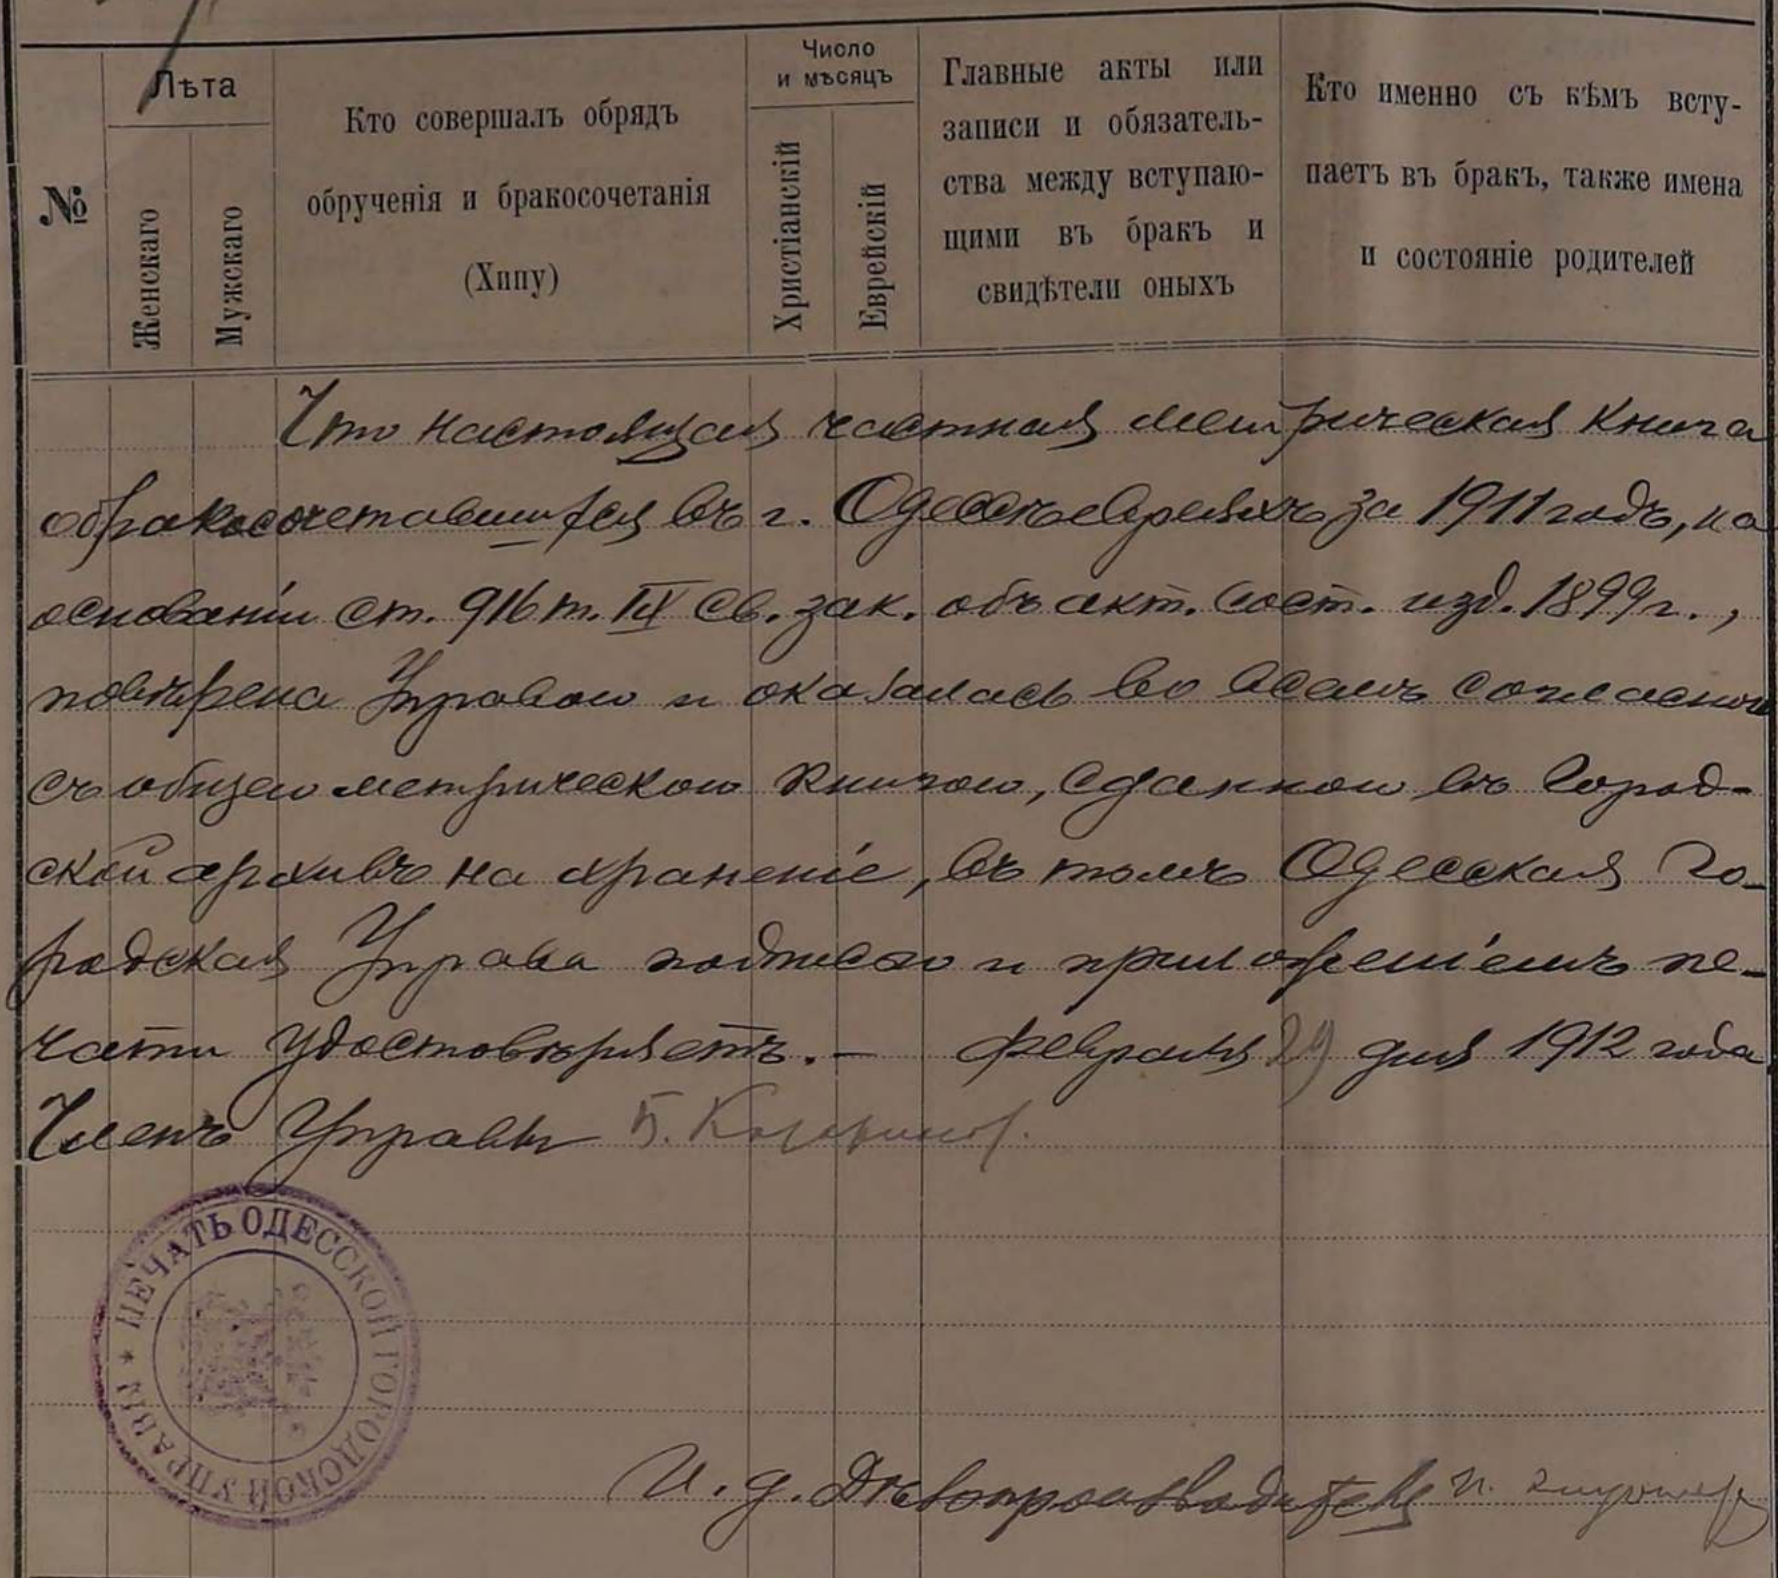 №
Лѣта
Женскаго
Мужскаго
Кто совершалъ обрядъ
обрученія и бракосочетанія
(Хипу)
Число
и мѣсяцъ
Христіанскій
Еврейскій
Главные акты или
записи и обязатель-
ства между вступаю-
щими въ бракъ и
свидѣтели оныхъ
Кто именно съ кѣмъ всту-
паетъ въ бракъ, также имена
и состояніе родителей
Что настоящая частная метрическая книга
о бракосочетавшихся въ г. Одессѣ евреяхъ за 1911 годъ, на
основаніи ст. 916 т. IX Св. зак. объ акт. сост. изд. 1899 г.,
повѣрена Управою и оказалась во всемъ согласною
съ общею метрическою книгою, сданною въ Город-
ской архивъ на храненіе, въ томъ Одесская Го-
родская Управа подписью и приложеніемъ пе-
чати удостовѣряетъ. — февраля 29 дня 1912 года
Членъ Управы Б.
ПЕЧАТЬ ОДЕССКОЙ ГОРОДСКОЙ УПРАВЫ *
И. д. Дѣлопроизводителя